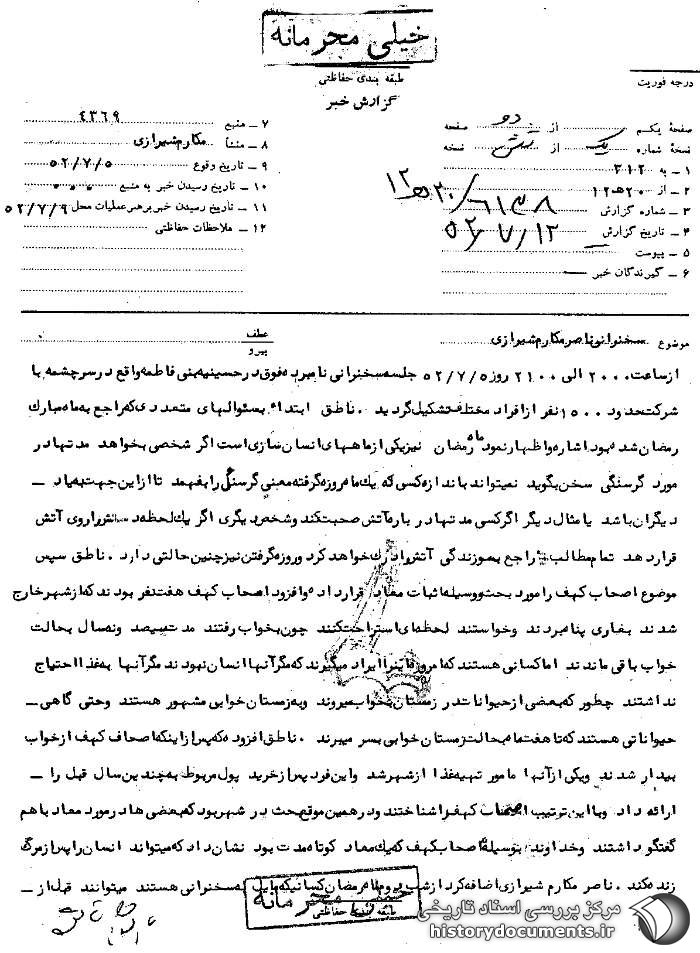 خیلی محرمانه
طبقه بندی حفاظتی
گزارش خبر
درجه فوریت
صفحهٔ یکم از دو صفحه
نسخهٔ شماره یک از شش نسخه
۱ ـ به ۳۱۲
۲ ـ از ۲۰ ه ۱۲
۳ ـ شماره گزارش
۴ ـ تاریخ گزارش ۵۲/۷/۱۲
۵ ـ پیوست
۶ ـ گیرندگان خبر
۷ ـ منبع ۴۳۶۹
۸ ـ منشأ مکارم شیرازی
۹ ـ تاریخ وقوع ۵۲/۷/۵
۱۰ ـ تاریخ رسیدن خبر به منبع
۱۱ ـ تاریخ رسیدن خبر برهبر عملیات محل ۵۲/۷/۹
۱۲ ـ ملاحظات حفاظتی
موضوع سخنرانی ناصر مکارم شیرازی
عطف
پیرو
از ساعت ۲۰۰۰ الی ۲۱۰۰ روز ۵۲/۷/۵ جلسه سخنرانی نامبرده فوق در حسینیه بنی فاطمه واقع در سرچشمه با
شرکت حدود ۱۵۰۰ نفر از افراد مختلف تشکیل گردید . ناطق ابتداء بسئوالهای متعددی که راجع به ماه مبارک
رمضان شده بود اشاره و اظهار نمود ماه رمضان نیز یکی از ماههای انسان سازی است اگر شخصی بخواهد مدتها در
مورد گرسنگی سخن بگوید نمیتواند باندازه کسی که یک ماه روزه گرفته معنی گرسنگی را بفهمد تا از این جهت به یاد ـ
دیگران باشد یا مثال دیگر اگر کسی مدتها در باره آتش صحبت کند و شخص دیگری اگر یک لحظه دستش را روی آتش
قرار دهد تمام مطالب راجع به سوزندگی آتش را درک خواهد کرد و روزه گرفتن نیز چنین حالتی دارد . ناطق سپس
موضوع اصحاب کهف را مورد بحث و وسیله اثبات معاد قرار داده و افزود اصحاب کهف هفت نفر بودند که از شهر خارج
شدند بغاری پناه بردند و خواستند لحظه ای استراحت کنند چون بخواب رفتند مدت سیصد و نه سال بحالت
خواب باقی ماندند اما کسانی هستند که امروزه باینرا ایراد میگیرند که مگر آنها انسان نبودند مگر آنها به غذا احتیاج
نداشتند چطور که بعضی از حیوانات در زمستان بخواب میروند و به زمستان خوابی مشهور هستند وحتی گاهی ـ
حیواناتی هستند که تا هفت ماه بحالت زمستان خوابی بسر میبرند . ناطق افزود که پس از اینکه اصحاف کهف از خواب
بیدار شدند و یکی از آنها مامور تهیه غذا از شهر شد و این فرد پس از خرید پول مربوط به چندین سال قبل را ـ
ارائه داد و با این ترتیب اصحاب کهف را شناختند و در همین موقع بحث در شهر بود که بعضی ها در مورد معاد با هم
گفتگو داشتند و خداوند بوسیله اصحاب کهف که یک معاد کوتاه مدت بود نشان داد که میتواند انسان را پس از مرگ
زنده کند . ناصر مکارم شیرازی اضافه کرد از شب دوم ماه رمضان کسانیکه مایل به سخنرانی هستند میتوانند قبل از ـ
خیلی محرمانه
طبقه بندی حفاظتی
مرکز بررسی اسناد تاریخی
historydocuments.ir